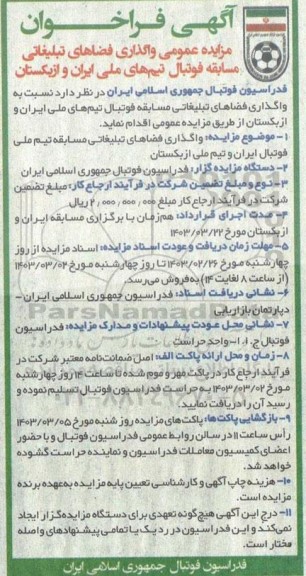 آگهی فراخوان
مزایده عمومی واگذاری فضاهای تبلیغاتی
مسابقه فوتبال تیم‌های ملی ایران و ازبکستان
فدراسیون فوتبال جمهوری اسلامی ایران در نظر دارد نسبت به
واگذاری فضاهای تبلیغاتی مسابقه فوتبال تیم‌های ملی ایران و
ازبکستان از طریق مزایده عمومی اقدام نماید.
۱- موضوع مزایده: واگذاری فضاهای تبلیغاتی مسابقه تیم ملی
فوتبال ایران و تیم ملی ازبکستان
۲- دستگاه مزایده گزار: فدراسیون فوتبال جمهوری اسلامی ایران
۳- نوع و مبلغ تضمین شرکت در فرآیند ارجاع کار: مبلغ تضمین
شرکت در فرآیند ارجاع کار مبلغ ۲,۰۰۰,۰۰۰,۰۰۰ ریال
۴- مدت اجرای قرارداد: هم‌زمان با برگزاری مسابقه ایران و
ازبکستان مورخ ۱۴۰۳/۰۳/۲۲
۵- مهلت زمان دریافت و عودت اسناد مزایده: اسناد مزایده از روز
چهارشنبه مورخ ۱۴۰۳/۰۲/۲۶ تا روز چهارشنبه مورخ ۱۴۰۳/۰۳/۰۲
(از ساعت ۸ لغایت ۱۴) به فروش می‌رسد.
۶- نشانی دریافت اسناد: فدراسیون جمهوری اسلامی ایران -
دپارتمان بازاریابی
۷- نشانی محل عودت پیشنهادات و مدارک مزایده: فدراسیون
فوتبال ج.ا.ا- واحد حراست
۸- زمان و محل ارائه پاکت الف: اصل ضمانت‌نامه معتبر شرکت در
فرآیند ارجاع کار در پاکت مهر و موم شده تا ساعت ۱۴ روز چهارشنبه
مورخ ۱۴۰۳/۰۳/۰۲ به حراست فدراسیون فوتبال تسلیم نموده و
رسید آن را دریافت نمایید.
۹- بازگشایی پاکت‌ها: پاکت‌های مزایده روز شنبه مورخ ۱۴۰۳/۰۳/۰۵
راس ساعت ۱۱ در سالن روابط عمومی فدراسیون فوتبال و با حضور
اعضای کمیسیون معاملات فدراسیون و نماینده حراست گشوده
خواهد شد.
۱۰- هزینه چاپ آگهی و کارشناسی تعیین پایه مزایده به عهده برنده
مزایده است.
۱۱- درج این آگهی هیچ‌گونه تعهدی برای دستگاه مزایده‌گزار ایجاد
نمی‌کند و این فدراسیون در رد یک یا تمامی پیشنهادهای واصله
مختار است.
فدراسیون فوتبال جمهوری اسلامی ایران